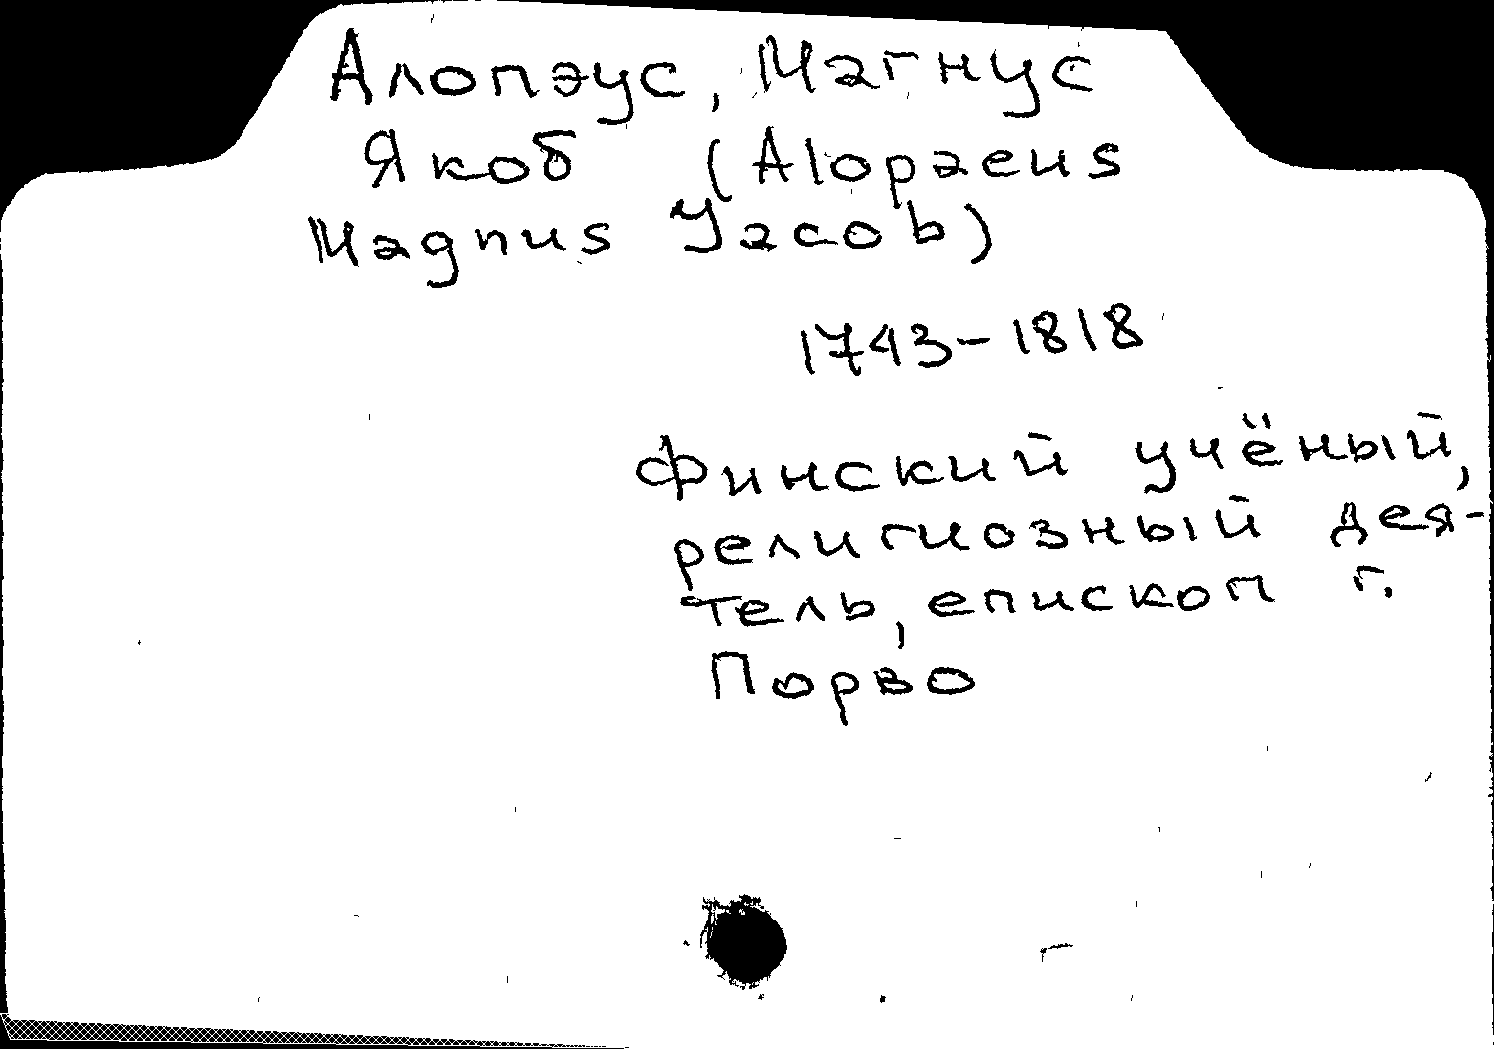 Алопэус, Магнус
Якоб (Alopaeus
Magnus Jacob)
1743-1818
Финский учёный,
религиозный дея-
тель, епископ г.
Порво